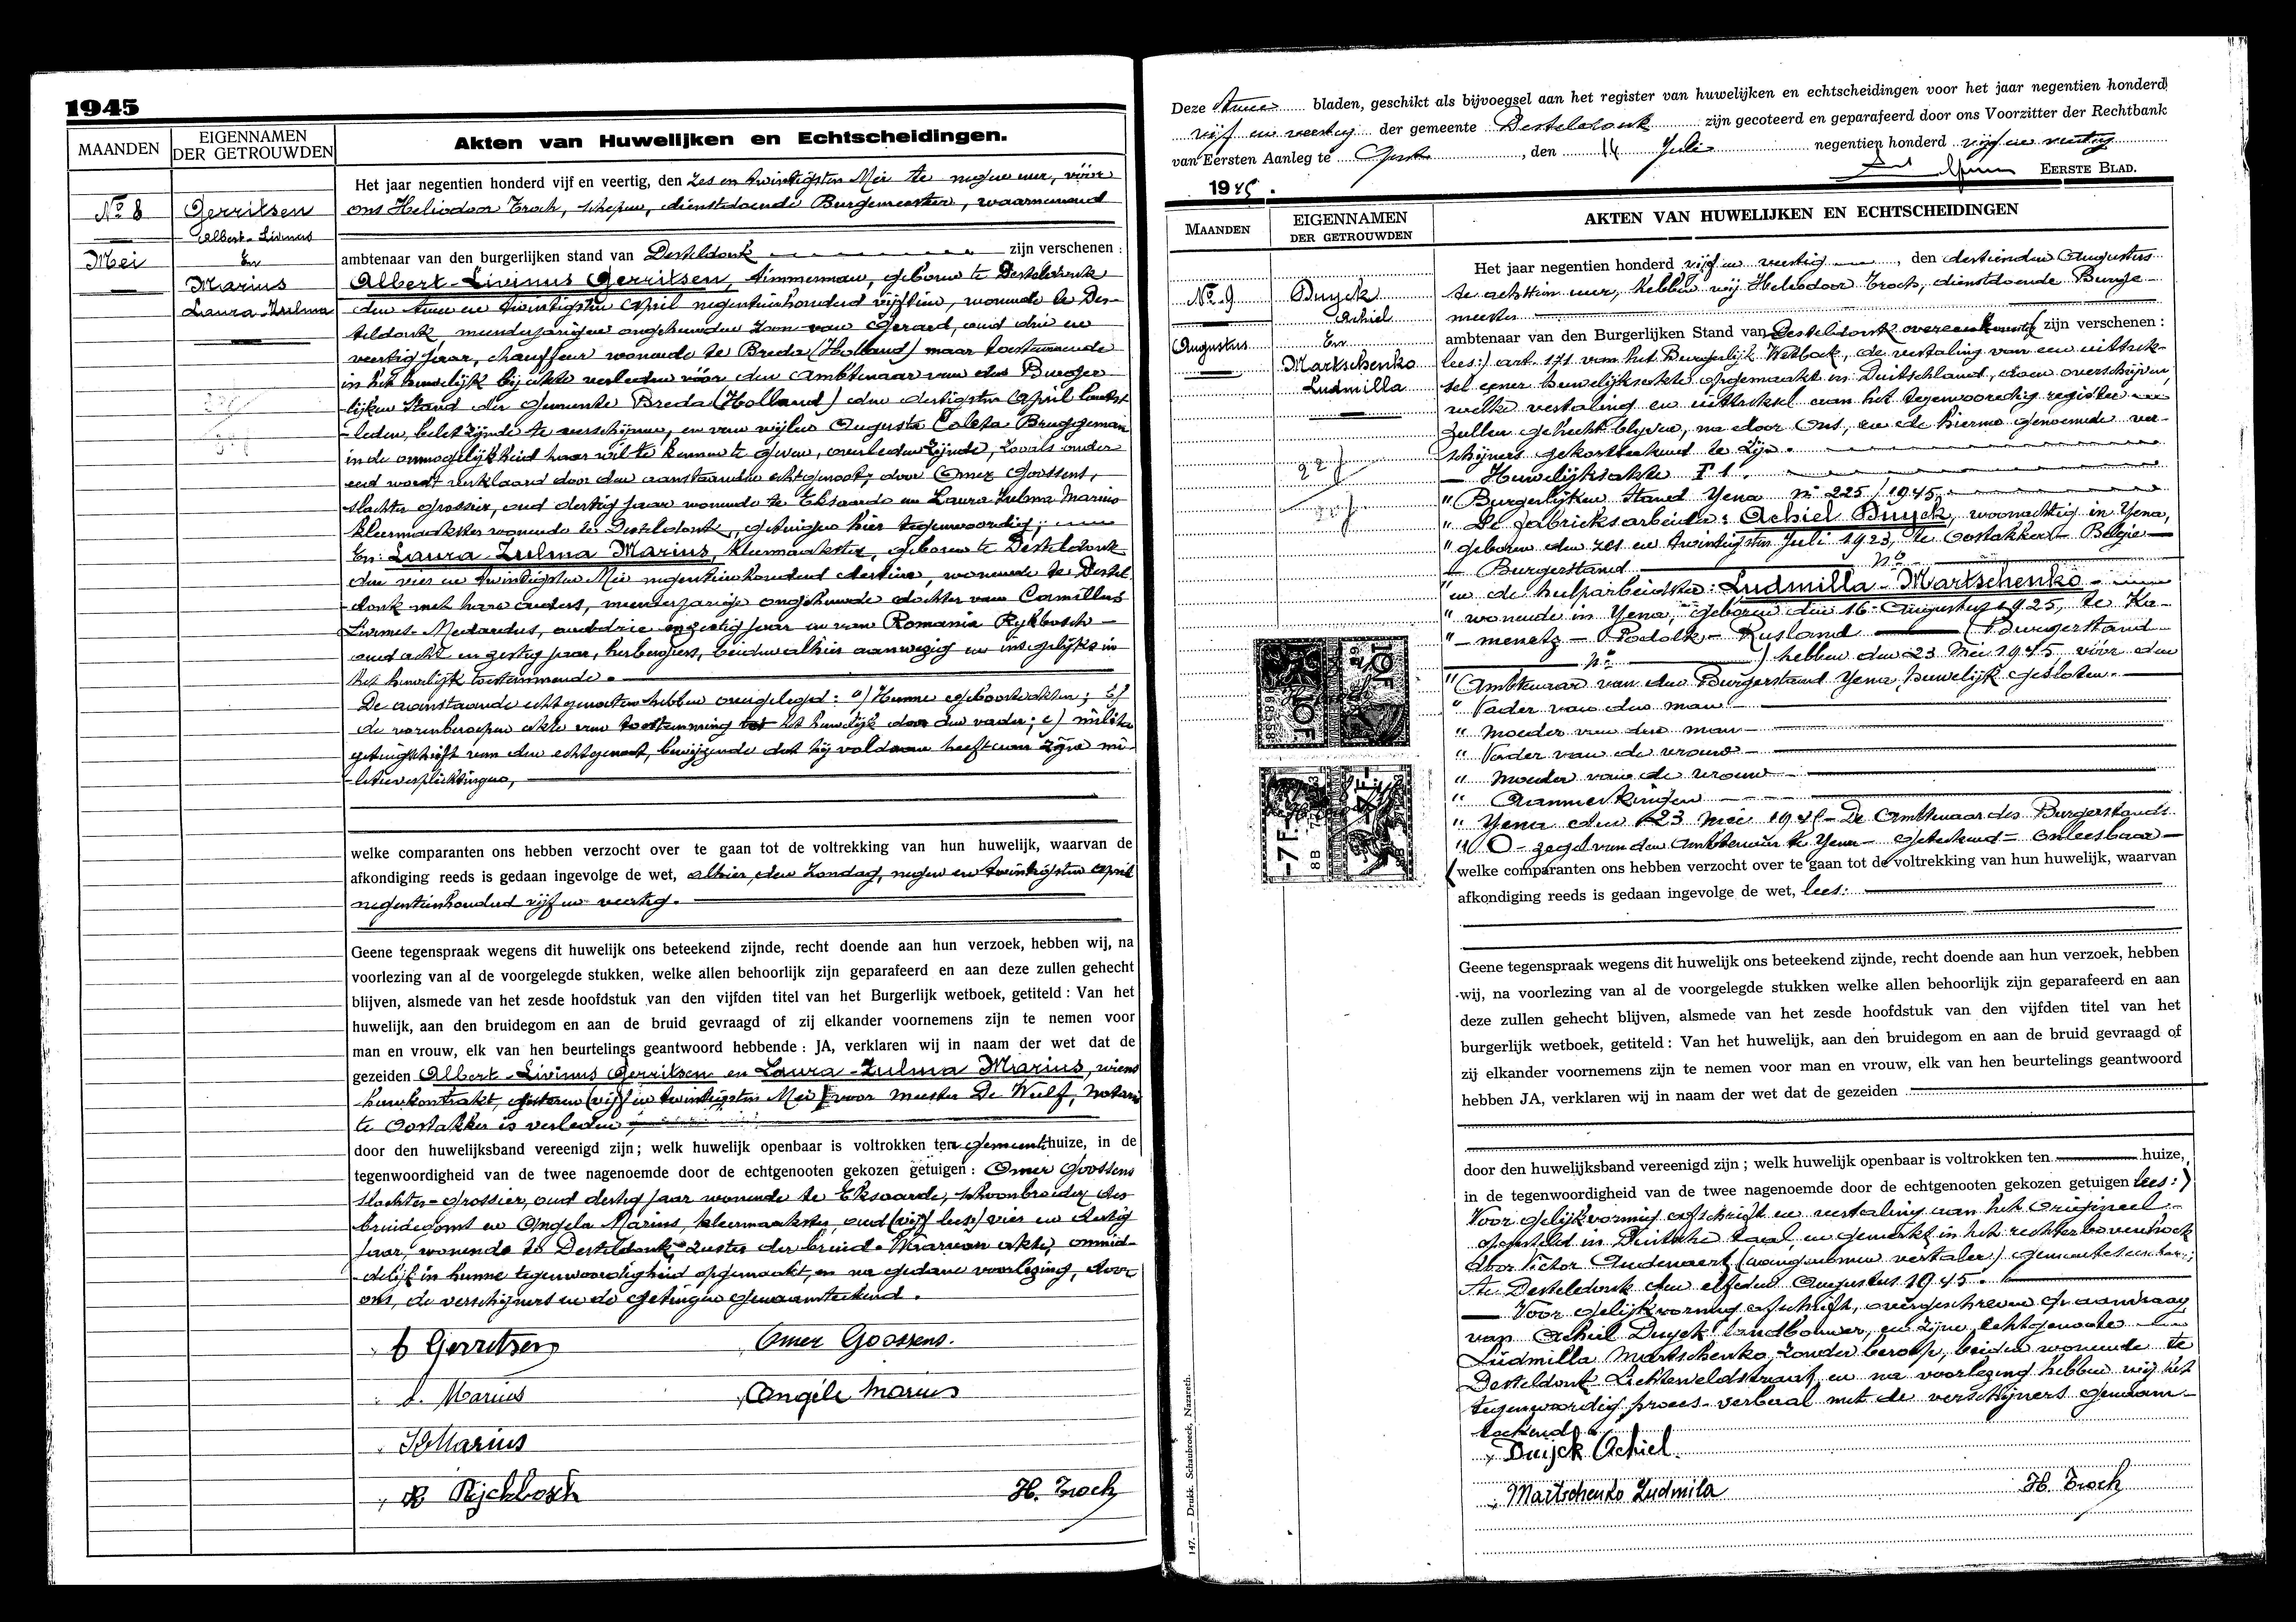 1945
MAANDEN
EIGENNAMEN
DER GETROUWDEN
Akten van Huwelijken en Echtscheidingen.
No 8
Mei
Gerritsen
Albert-Livinus
En
Marius
Laura-Zulma
Het jaar negentien honderd vijf en veertig, den zes en twintigsten Mei te negen uur, vóór
ons Heliodoor Troch, schepen, dienstdoende Burgemeester, waarnemend
ambtenaar van den burgerlijken stand van Desteldonk zijn verschenen :
Albert-Livinus Gerritsen, timmerman, geboren te Desteldonk
den twee en twintigsten April negentienhonderd vijftien, wonende te Des-
teldonk, meerderjarigen ongehuwden zoon van Gerard, oud drie en
veertig jaar, chauffeur wonende te Breda (Holland) maar toestemmende
in het huwelijk bij akte verleden vóór den Ambtenaar van den Burger-
lijken Stand der Gemeente Breda (Holland) den dertigsten April laatst-
leden, belet zijnde te verschijnen, en van wijlen Augusta Coleta Bruggeman
in de onmogelijkheid haar wil te kennen te geven, overleden zijnde, zooals onder
eed wordt verklaard door den aanstaanden echtgenoot, door Omer Goossens,
slachter grossier, oud dertig jaar wonende te Eksaarde en Laura Zulma Marius
kleermaakster wonende te Desteldonk, getuigen hier tegenwoordig;
En: Laura Zulma Marius, kleermaakster, geboren te Desteldonk
den vier en twintigsten Mei negentienhonderd dertien, wonende te Destel-
donk met hare ouders, meerderjarige ongehuwde dochter van Camillus
Livinus-Medardus, oud drie en zestig jaar en van Romania Rykbosch
oud acht en zestig jaar, herbergiers, beiden alhier aanwezig en insgelijks in
het huwelijk toestemmende.
De aanstaande echtgenooten hebben overgelegd: a) Hunne geboorteakten; b)
de voornoemde akte van toestemming tot het huwelijk door den vader; c) militie
getuigschrift van den echtgenoot, bewijzende dat hij voldaan heeft aan zijne mi-
litieverplichtingen,
welke comparanten ons hebben verzocht over te gaan tot de voltrekking van hun huwelijk, waarvan de
afkondiging reeds is gedaan ingevolge de wet, alhier, den Zondag, negen en twintigsten April
negentienhonderd vijf en veertig.
Geene tegenspraak wegens dit huwelijk ons beteekend zijnde, recht doende aan hun verzoek, hebben wij, na
voorlezing van al de voorgelegde stukken, welke allen behoorlijk zijn geparafeerd en aan deze zullen gehecht
blijven, alsmede van het zesde hoofdstuk van den vijfden titel van het Burgerlijk wetboek, getiteld : Van het
huwelijk, aan den bruidegom en aan de bruid gevraagd of zij elkander voornemens zijn te nemen voor
man en vrouw, elk van hen beurtelings geantwoord hebbende : JA, verklaren wij in naam der wet dat de
gezeiden Albert-Livinus Gerritsen en Laura-Zulma Marius, wiens
huwkontrakt, gisteren (vijf en twintigsten Mei) voor meester De Wulf, Notaris
te Oostakker is verleden,
door den huwelijksband vereenigd zijn; welk huwelijk openbaar is voltrokken ten gemeentehuize, in de
tegenwoordigheid van de twee nagenoemde door de echtgenooten gekozen getuigen : Omer Goossens
slachter-grossier, oud dertig jaar wonende te Eksaarde, schoonbroeder des
bruidegoms en Angela Marius, kleermaakster, oud (vijf lees) vier en dertig
jaar, wonende te Desteldonk, zuster der bruid. Waarvan akte, onmid-
delijk in hunne tegenwoordigheid opgemaakt, en na gedane voorlezing, door
ons, de verschijners en de getuigen genaamteekend.
Gerritsen
Omer Goossens.
Marius
Angèle Marius
Marius
R Rijckbosch
H. Troch
Deze twee bladen, geschikt als bijvoegsel aan het register van huwelijken en echtscheidingen voor het jaar negentien honderd
vijf en veertig der gemeente Desteldonk zijn gecoteerd en geparafeerd door ons Voorzitter der Rechtbank
van Eersten Aanleg te Gent, den 14 Juli negentien honderd vijf en veertig
EERSTE BLAD.
1945.
MAANDEN
EIGENNAMEN
DER GETROUWDEN
AKTEN VAN HUWELIJKEN EN ECHTSCHEIDINGEN
No 9
Augustus
Duyck
Achiel
En
Martschenko
Ludmilla
Het jaar negentien honderd vijf en veertig, den dertienden Augustus
te achttien uur, hebben wij Heliodoor Troch, dienstdoende Burge-
meester
ambtenaar van den Burgerlijken Stand van Desteldonk overeenkomstig zijn verschenen :
lees:) art. 171 van het Burgerlijk Wetboek, de vertaling van een uittrek-
sel eener huwelijksakte opgemaakt in Duitschland, doen overschrijven,
welke vertaling en uittreksel aan het tegenwoordig register
zullen gehecht blijven, na door ons, en de hierna genoemde ver-
schijners gekortteekend te zijn.
— Huwelijksakte F 1.
" Burgerlijken Stand Yena nr 225/1945.
" De fabrieksarbeider: Achiel Duyck, woonachtig in Yena,
" geboren den zes en twintigsten Juli 1923, te Oostakker - België
" Burgerstand no
" en de hulparbeidster: Ludmilla - Martschenko -
" wonende in Yena, geboren den 16 Augustus 1925, te Ka-
" - menetz - Podolk - Rusland (Burgerstand
no ) hebben den 23 Mei 1945, vóór den
" Ambtenaar van den Burgerstand Yena, huwelijk gesloten.
" Vader van den man
" Moeder van den man
" Vader van de vrouw
" Moeder van de vrouw
" Aanmerkingen
" Yena den 23 Mei 1945 - De Ambtenaar des Burgerstands
" O - zegel van den Ambtenaar te Yena - geteekend = onleesbaar -
welke comparanten ons hebben verzocht over te gaan tot de voltrekking van hun huwelijk, waarvan
afkondiging reeds is gedaan ingevolge de wet, lees:
10F
-7F-
8B
Geene tegenspraak wegens dit huwelijk ons beteekend zijnde, recht doende aan hun verzoek, hebben
wij, na voorlezing van al de voorgelegde stukken welke allen behoorlijk zijn geparafeerd en aan
deze zullen gehecht blijven, alsmede van het zesde hoofdstuk van den vijfden titel van het
burgerlijk wetboek, getiteld : Van het huwelijk, aan den bruidegom en aan de bruid gevraagd of
zij elkander voornemens zijn te nemen voor man en vrouw, elk van hen beurtelings geantwoord
hebben JA, verklaren wij in naam der wet dat de gezeiden
door den huwelijksband vereenigd zijn ; welk huwelijk openbaar is voltrokken ten huize,
in de tegenwoordigheid van de twee nagenoemde door de echtgenooten gekozen getuigen lees:)
Voor gelijkvormig afschrift en vertaling van het origineel
opgesteld in Duitsche taal en gemerkt in het rechter bovenhoek
door Victor Audenaert (aangenomen vertaler) gemeentesecretaris
te Desteldonk den elfden Augustus 1945.
— Voor gelijkvormig afschrift, overgeschreven op aanvraag
van Achiel Duyck landbouwer, en zijne echtgenoote
Ludmilla Martschenko, zonder beroep, beiden wonende te
Desteldonk Lichtelveldstraat, en na voorlezing hebben wij het
tegenwoordig proces-verbaal met de verschijners genaam-
teekend
Duijck Achiel.
Martschenko Ludmila
H. Troch
147. — Drukk. Schaubroeck, Nazareth.